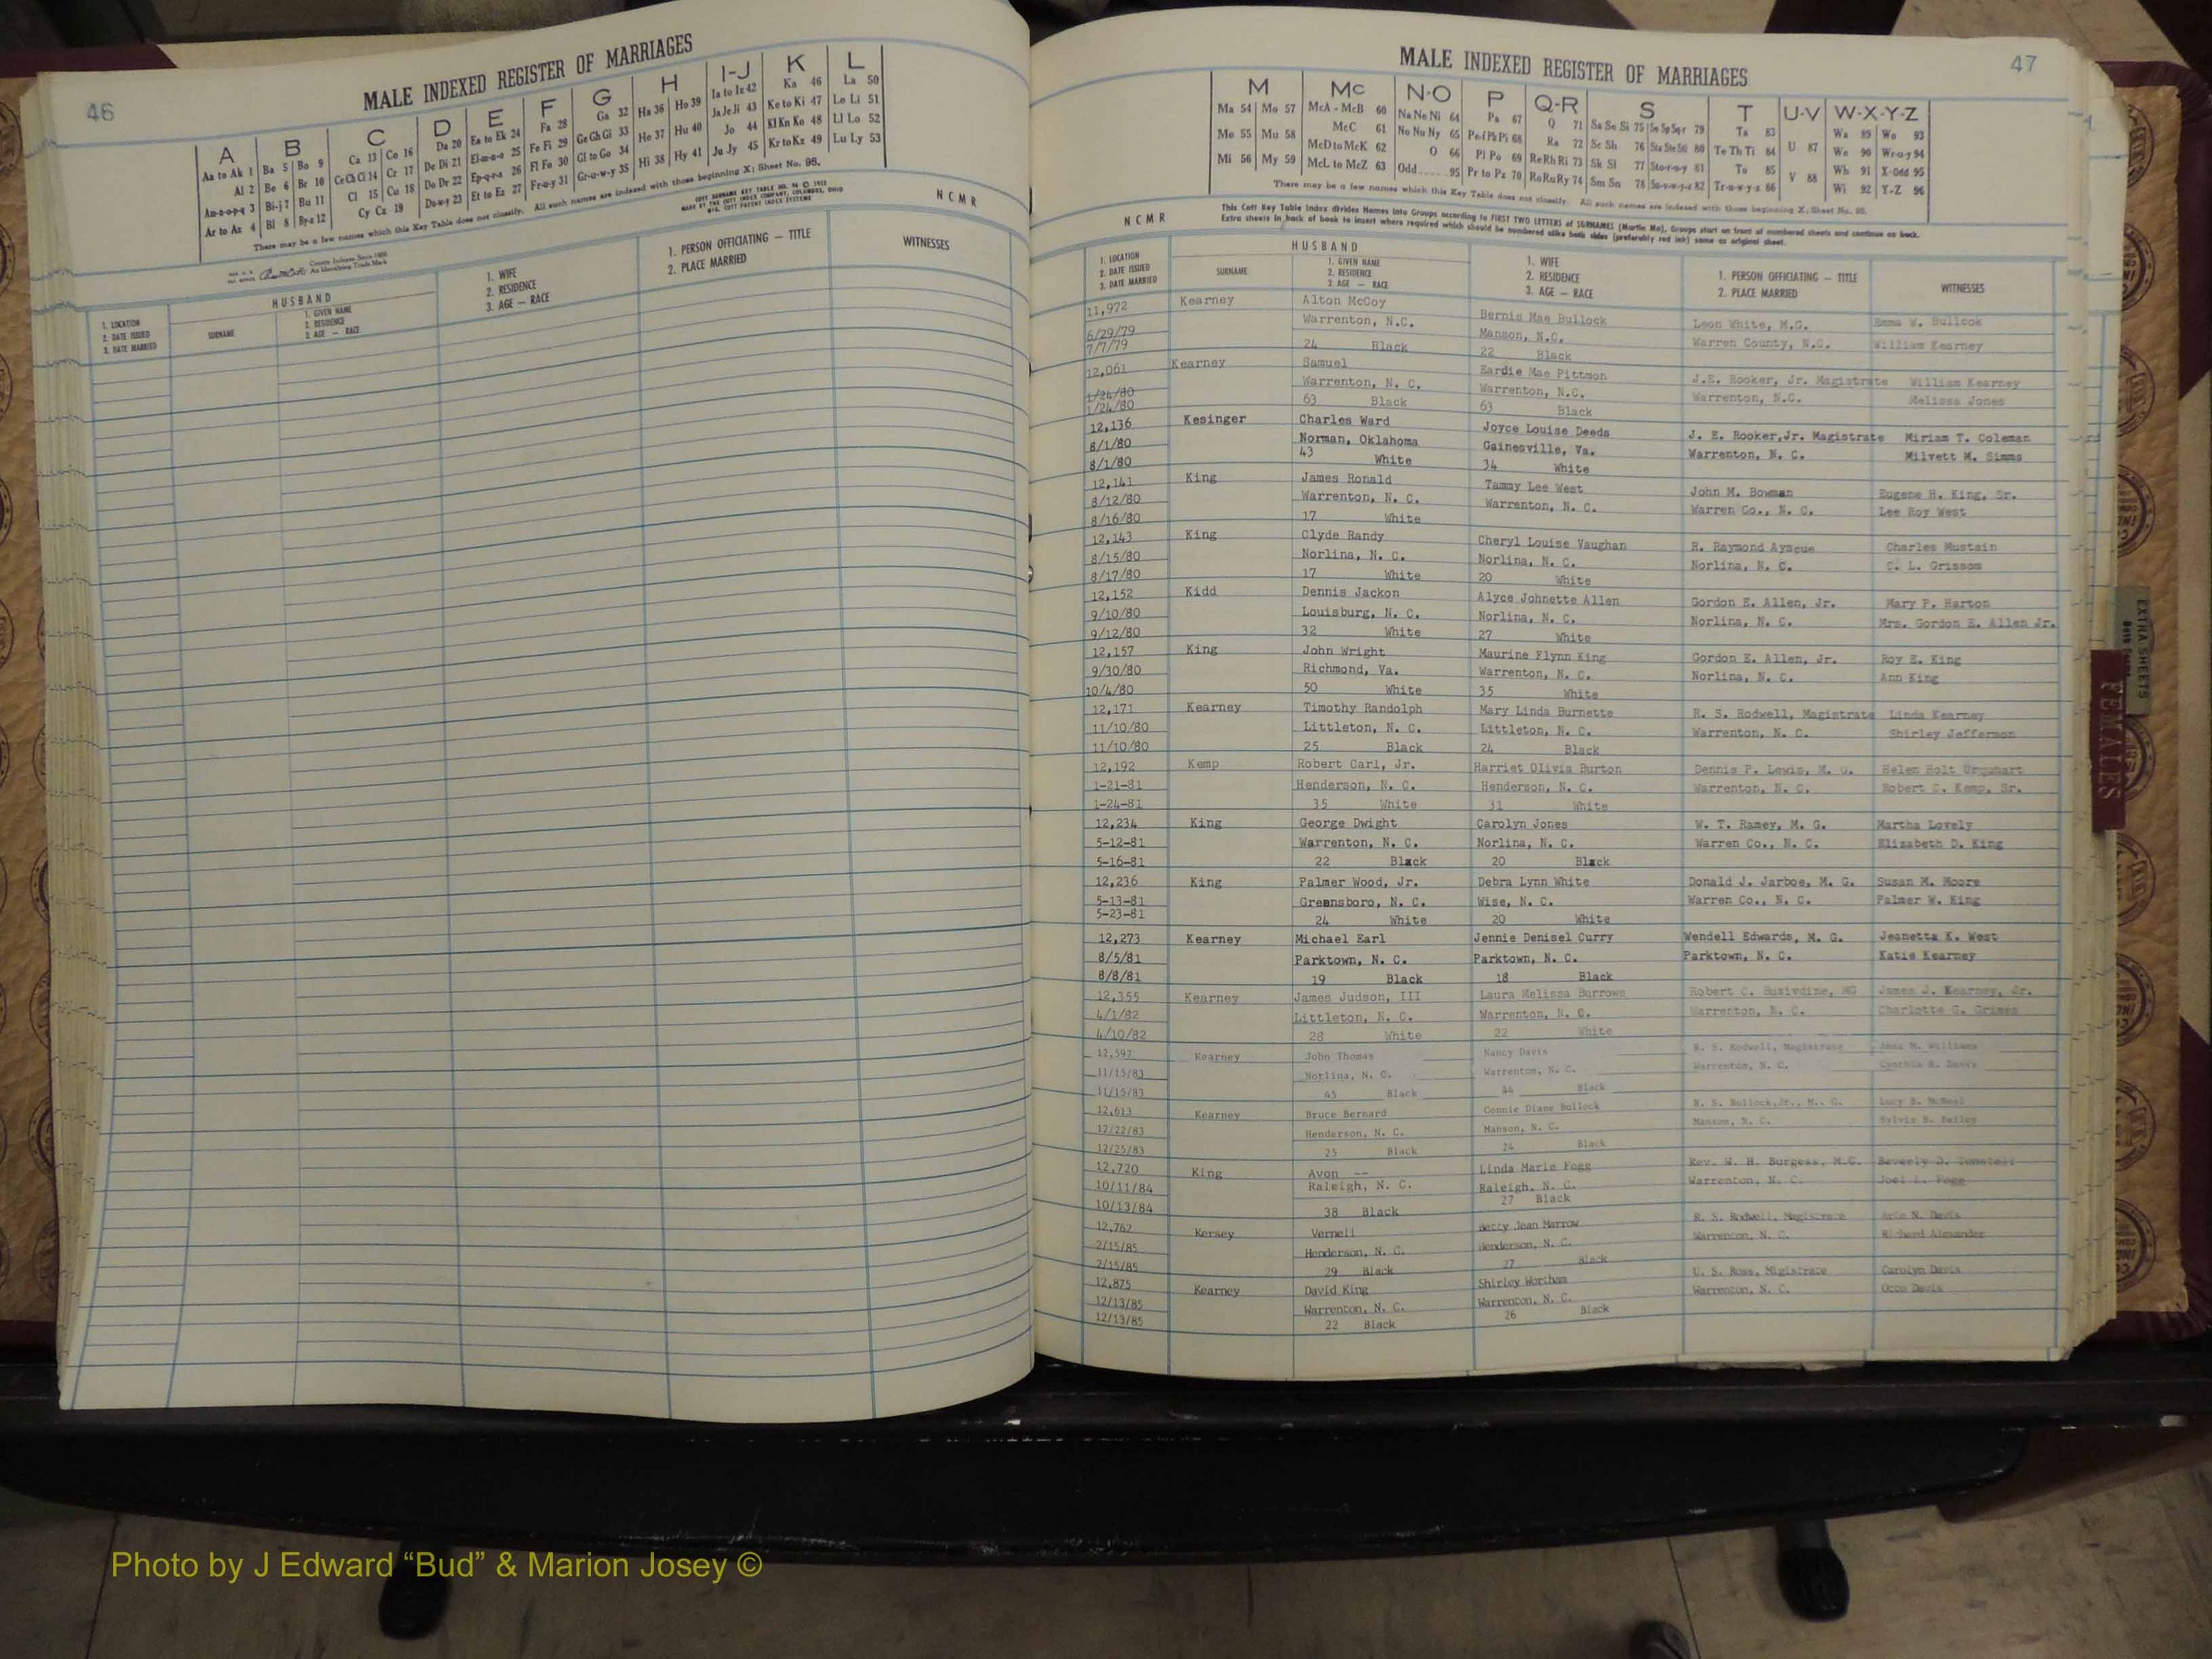 46
MALE INDEXED REGISTER OF MARRIAGES
A B C D E F G H I-J K L
Aa to Ak 1 Ba 5 Bo 9 Ca 13 Co 16 Da 20 Ea to Ek 24 Fa 28 Ga 32 Ha 36 Ho 39 Ia to Iz 42 Ka 46 La 50
Al 2 Be 6 Br 10 Ce Ch Ci 14 Cr 17 De Di 21 El-m-n-o 25 Fe Fi 29 Ge Gh Gi 33 He 37 Hu 40 Ja Je Ji 43 Ke to Ki 47 Le Li 51
Am-n-o-p-q 3 Bi-j 7 Bu 11 Cl 15 Cu 18 Do Dr 22 Ep-q-r-s 26 Fl Fo 30 Gl to Go 34 Hi 38 Hy 41 Jo 44 Kl Kn Ko 48 Ll Lo 52
Ar to Az 4 Bl 8 By-z 12 Cy Cz 19 Du-w-y 23 Et to Ez 27 Fr-u-y 31 Gr-u-w-y 35 Ju Jy 45 Kr to Kz 49 Lu Ly 53
There may be a few names which this Key Table does not classify. All such names are indexed with those beginning X; Sheet No. 95.
NCMR
HUSBAND
1. LOCATION
2. DATE ISSUED
3. DATE MARRIED
SURNAME
1. GIVEN NAME
2. RESIDENCE
3. AGE — RACE
1. WIFE
2. RESIDENCE
3. AGE — RACE
1. PERSON OFFICIATING — TITLE
2. PLACE MARRIED
WITNESSES
MALE INDEXED REGISTER OF MARRIAGES
47
M Mc N-O P Q-R S T U-V W-X-Y-Z
Ma 54 Mo 57 McA - McB 60 Na Ne Ni 64 Pa 67 Q 71 Sa Se Si 75 So Sp Sq-r 79 Ta 83 Wa 89 Wo 93
Me 55 Mu 58 McC 61 No Nu Ny 65 Pe-f Ph Pi 68 Ra 72 Sc Sh 76 Sta Ste Sti 80 Te Th Ti 84 U 87 We 90 Wr-u-y 94
Mi 56 My 59 McD to McK 62 O 66 Pl Po 69 Re Rh Ri 73 Sk Sl 77 Sto-r-u-y 81 To 85 Wh 91 X-Odd 95
McL to McZ 63 Odd 95 Pr to Pz 70 Ro Ru Ry 74 Sm Sn 78 Su-v-w-y-z 82 Tr-u-w-y-z 86 V 88 Wi 92 Y-Z 96
There may be a few names which this Key Table does not classify. All such names are indexed with those beginning X; Sheet No. 95.
This Cott Key Table Index divides Names into Groups according to FIRST TWO LETTERS of SURNAMES (Martin Ma), Groups start on front of numbered sheets and continue on back.
Extra sheets in back of book to insert where required which should be numbered alike both sides (preferably red ink) same as original sheet.
NCMR
HUSBAND
1. LOCATION
2. DATE ISSUED
3. DATE MARRIED
SURNAME
1. GIVEN NAME
2. RESIDENCE
3. AGE — RACE
1. WIFE
2. RESIDENCE
3. AGE — RACE
1. PERSON OFFICIATING — TITLE
2. PLACE MARRIED
WITNESSES
11,972 Kearney Alton McCoy Bernis Mae Bullock Leon White, M.G. Emma W. Bullock
6/29/79 Warrenton, N.C. Manson, N.C. Warren County, N.C. William Kearney
7/7/79 24 Black 22 Black
12,061 Kearney Samuel Eardie Mae Pittman J.E. Rooker, Jr. Magistrate William Kearney
1/24/80 Warrenton, N. C. Warrenton, N.C. Warrenton, N.C. Melissa Jones
1/24/80 63 Black 63 Black
12,136 Kesinger Charles Ward Joyce Louise Deeds J. E. Rooker,Jr. Magistrate Miriam T. Coleman
8/1/80 Norman, Oklahoma Gainesville, Va. Warrenton, N. C. Milvett M. Simms
8/1/80 43 White 34 White
12,141 King James Ronald Tammy Lee West John M. Bowman Eugene H. King, Sr.
8/12/80 Warrenton, N. C. Warrenton, N. C. Warren Co., N. C. Lee Roy West
8/16/80 17 White
12,143 King Clyde Randy Cheryl Louise Vaughan R. Raymond Ayscue Charles Mustain
8/15/80 Norlina, N. C. Norlina, N. C. Norlina, N. C. C. L. Grissom
8/17/80 17 White 20 White
12,152 Kidd Dennis Jackon Alyce Johnette Allen Gordon E. Allen, Jr. Mary P. Harton
9/10/80 Louisburg, N. C. Norlina, N. C. Norlina, N. C. Mrs. Gordon E. Allen Jr.
9/12/80 32 White 27 White
12,157 King John Wright Maurine Flynn King Gordon E. Allen, Jr. Roy E. King
9/30/80 Richmond, Va. Warrenton, N. C. Norlina, N. C. Ann King
10/4/80 50 White 35 White
12,171 Kearney Timothy Randolph Mary Linda Burnette R. S. Rodwell, Magistrate Linda Kearney
11/10/80 Littleton, N. C. Littleton, N. C. Warrenton, N. C. Shirley Jefferson
11/10/80 25 Black 24 Black
12,192 Kemp Robert Carl, Jr. Harriet Olivia Burton Dennis P. Lewis, M. G. Helen Holt Urquhart
1-21-81 Henderson, N. C. Henderson, N. C. Warrenton, N. C. Robert C. Kemp, Sr.
1-24-81 35 White 31 White
12,234 King George Dwight Carolyn Jones W. T. Ramey, M. G. Martha Lovely
5-12-81 Warrenton, N. C. Norlina, N. C. Warren Co., N. C. Elizabeth D. King
5-16-81 22 Black 20 Black
12,236 King Palmer Wood, Jr. Debra Lynn White Donald J. Jarboe, M. G. Susan M. Moore
5-13-81 Greensboro, N. C. Wise, N. C. Warren Co., N. C. Palmer W. King
5-23-81 24 White 20 White
12,273 Kearney Michael Earl Jennie Denisel Curry Wendell Edwards, M. G. Jeanetta K. West
8/5/81 Parktown, N. C. Parktown, N. C. Parktown, N. C. Katie Kearney
8/8/81 19 Black 18 Black
12,355 Kearney James Judson, III Laura Melissa Burrows Robert C. MG James J. Kearney, Jr.
4/1/82 Littleton, N. C. Warrenton, N. C. Warrenton, N. C. Charlotte G. Grimes
4/10/82 28 White 22 White
12,597 Kearney John Thomas Nancy Davis R. S. Rodwell, Magistrate M. Williams
11/15/83 Norlina, N. C. Warrenton, N. C. Warrenton, N. C. Cynthia R. Davis
11/15/83 45 Black 44 Black
12,613 Kearney Bruce Bernard Connie Diane Bullock Bullock,Jr., M. G. Lucy B. McNeal
12/22/83 Henderson, N. C. Manson, N. C. Manson, N. C. Sylvia B. Bailey
12/25/83 25 Black 24 Black
12,720 King Avon -- Linda Marie Fogg Rev. W. H. Burgess, M.G. Beverly D. Tunstall
10/11/84 Raleigh, N. C. Raleigh, N. C. Warrenton, N. C. Joel L. Fogg
10/13/84 38 Black 27 Black
12,762 Kersey Vernell Betty Jean Marrow R. S. Rodwell, Magistrate N. Davis
2/15/85 Henderson, N. C. Henderson, N. C. Warrenton, N. C. Richard Alexander
2/15/85 29 Black 27 Black
12,875 Kearney David King Shirley Wortham U. S. Ross, Migistrate Carolyn Davis
12/13/85 Warrenton, N. C. Warrenton, N. C. Warrenton, N. C. Davis
12/13/85 22 Black 26 Black
EXTRA SHEETS
FEMALES
Photo by J Edward “Bud” & Marion Josey ©